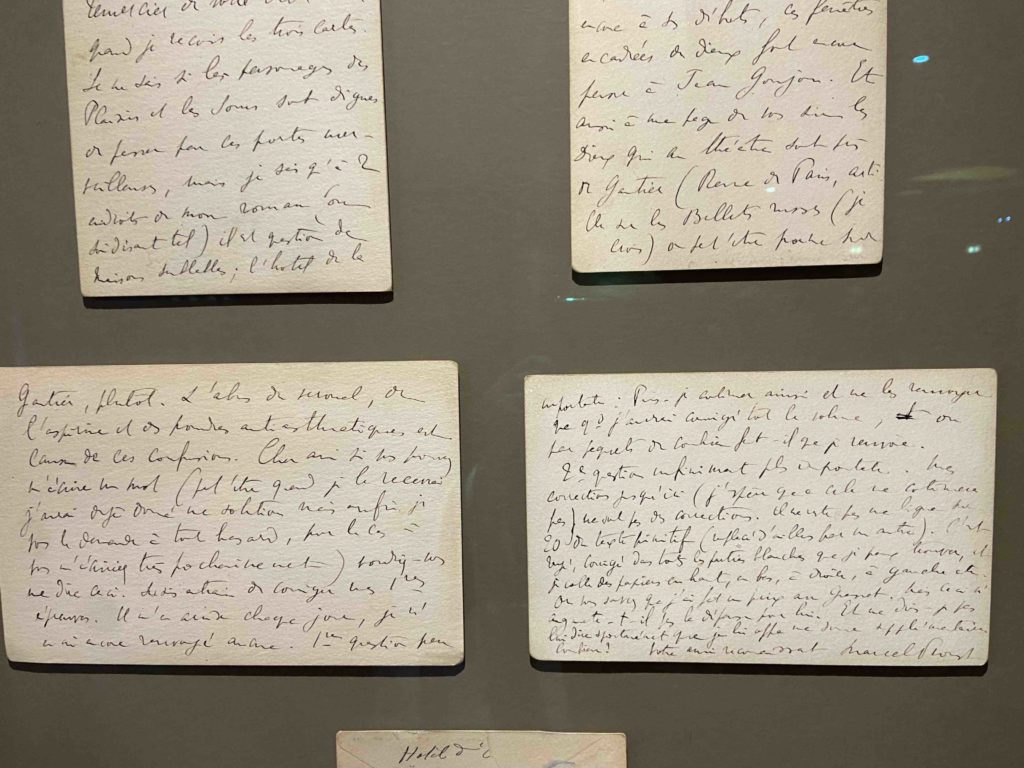 remercier de votre
quand je reçois les trois cartes.
Je ne sais si les personnages des
Plaisirs et les Jours sont dignes
de passer par ces portes mer-
veilleuses, mais je sais qu'à 2
endroits de mon roman (ou
soidisant tel) il est question de
maisons ; l'hôtel de la
encore à ses débuts, ces fenêtres
encadrées de dieux font encore
penser à Jean Goujon. Et
aussi à une page de vous sur les
dieux qui au théâtre sont
de Gautier (Revue de Paris, arti-
cle sur les Ballets russes (je
crois) ou peut'être
Gautier, plutôt. L'abus du véronal, de
l'aspirine et des poudres antiasthmatiques est
cause de ces confusions. Cher ami si vous pouvez
m'écrire un mot (peut'être quand je le recevrai
j'aurai déjà donné une solution mais enfin je
vous le demande à tout hasard, pour le cas où
vous m'écririez très prochainement) voudriez-vous
me dire ceci. Je suis en train de corriger mes 1res
épreuves. Il m'en arrive chaque jour, je n'
en ai encore renvoyé aucune. 1re question peu
importante : Puis-je continuer ainsi et ne les renvoyer
que qd j'aurai corrigé tout le volume, ou
par paquets de combien faut-il que je renvoie.
2e question infiniment plus importante. Mes
corrections jusqu'ici (j'espère que cela ne continuera
pas) ne sont pas des corrections. Il ne reste pas une ligne sur
20 du texte primitif (remplacé d'ailleurs par un autre). C'est
rayé, corrigé dans toutes les parties blanches que je peux trouver, et
je colle des papiers en haut, en bas, à droite, à gauche etc.
Or vous savez que j'ai fait un prix au Grasset. Mais ceci n'
augmente-t-il pas la dépense pour lui. Et ne dois-je pas
lui dire spontanément que je lui offre une somme supplémentaire
Combien? Votre ami reconnaissant Marcel Proust
Hotel d'